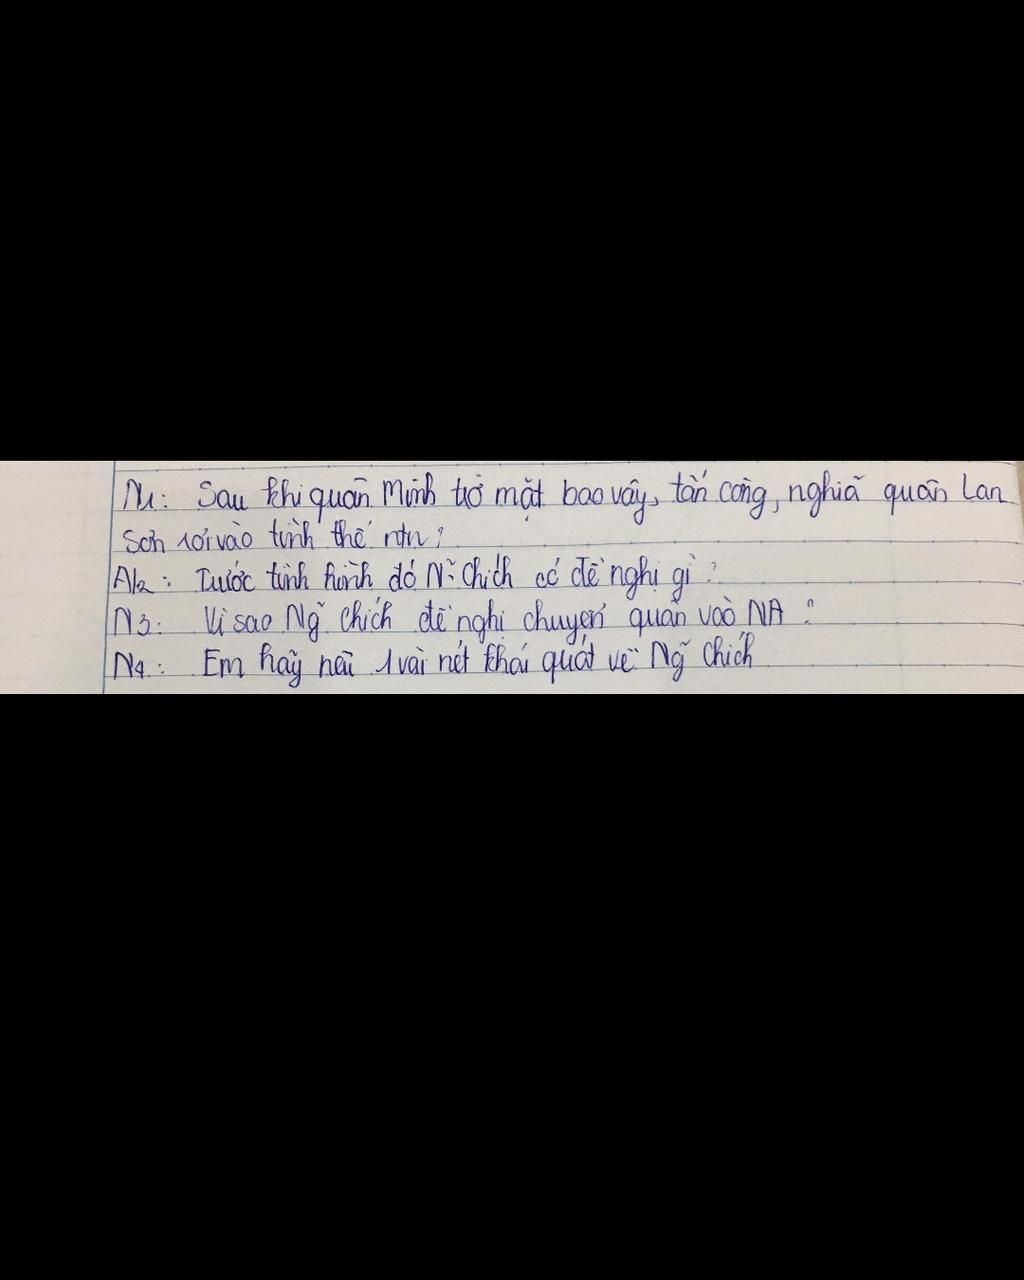 N1: Sau khi quân Minh trở mặt bao vây, tấn công, nghĩa quân Lan
Sơn rơi vào tình thế ntn?
N2: Trước tình hình đó Ng~ Chích có đề nghị gì?
N3: Vì sao Ng~ Chích đề nghị chuyển quân vào NA?
N4: Em hãy nêu 1 vài nét khái quát về Ng~ Chích